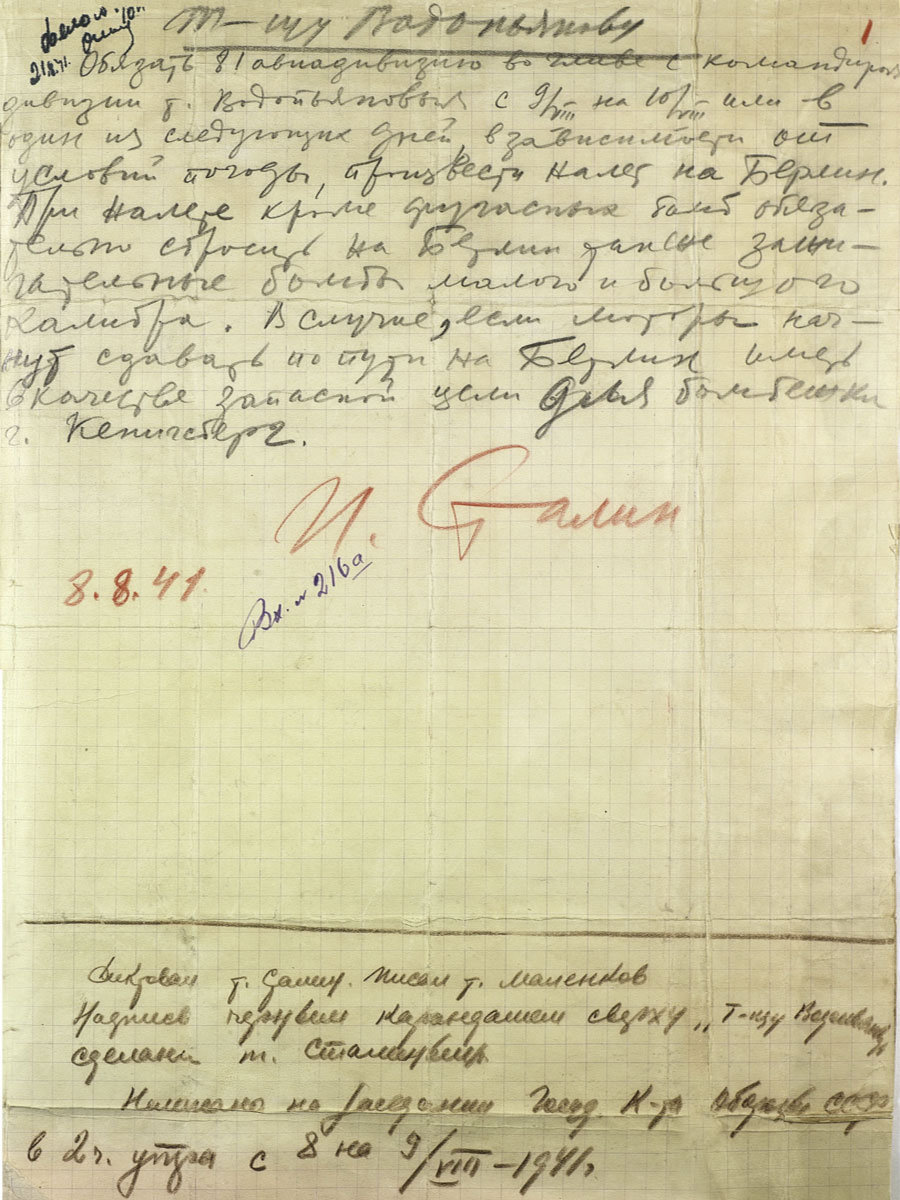 Т-щу Водопьянову
1
21/8 41.
Обязать 81 авиадивизию во главе с командиром
дивизии т. Водопьяновым с 9/VIII на 10/VIII или в
один из следующих дней, в зависимости от
условий погоды, произвести налет на Берлин.
При налете кроме фугасных бомб обяза-
тельно сбросить на Берлин также зажи-
гательные бомбы малого и большого
калибра. В случае, если моторы нач-
нут сдавать по пути на Берлин иметь
в качестве запасной цели для бомбежки
г. Кенигсберг.
И. Сталин
8.8.41.
Вх. № 216а
Диктовал т. Сталин. Писал т. Маленков
Надпись черным карандашом сверху „Т-щу Водопьянову
сделана т. Сталиным
Написано на заседании Госуд. К-та Обороны СССР
в 2 ч. утра с 8 на 9/VIII-1941г.